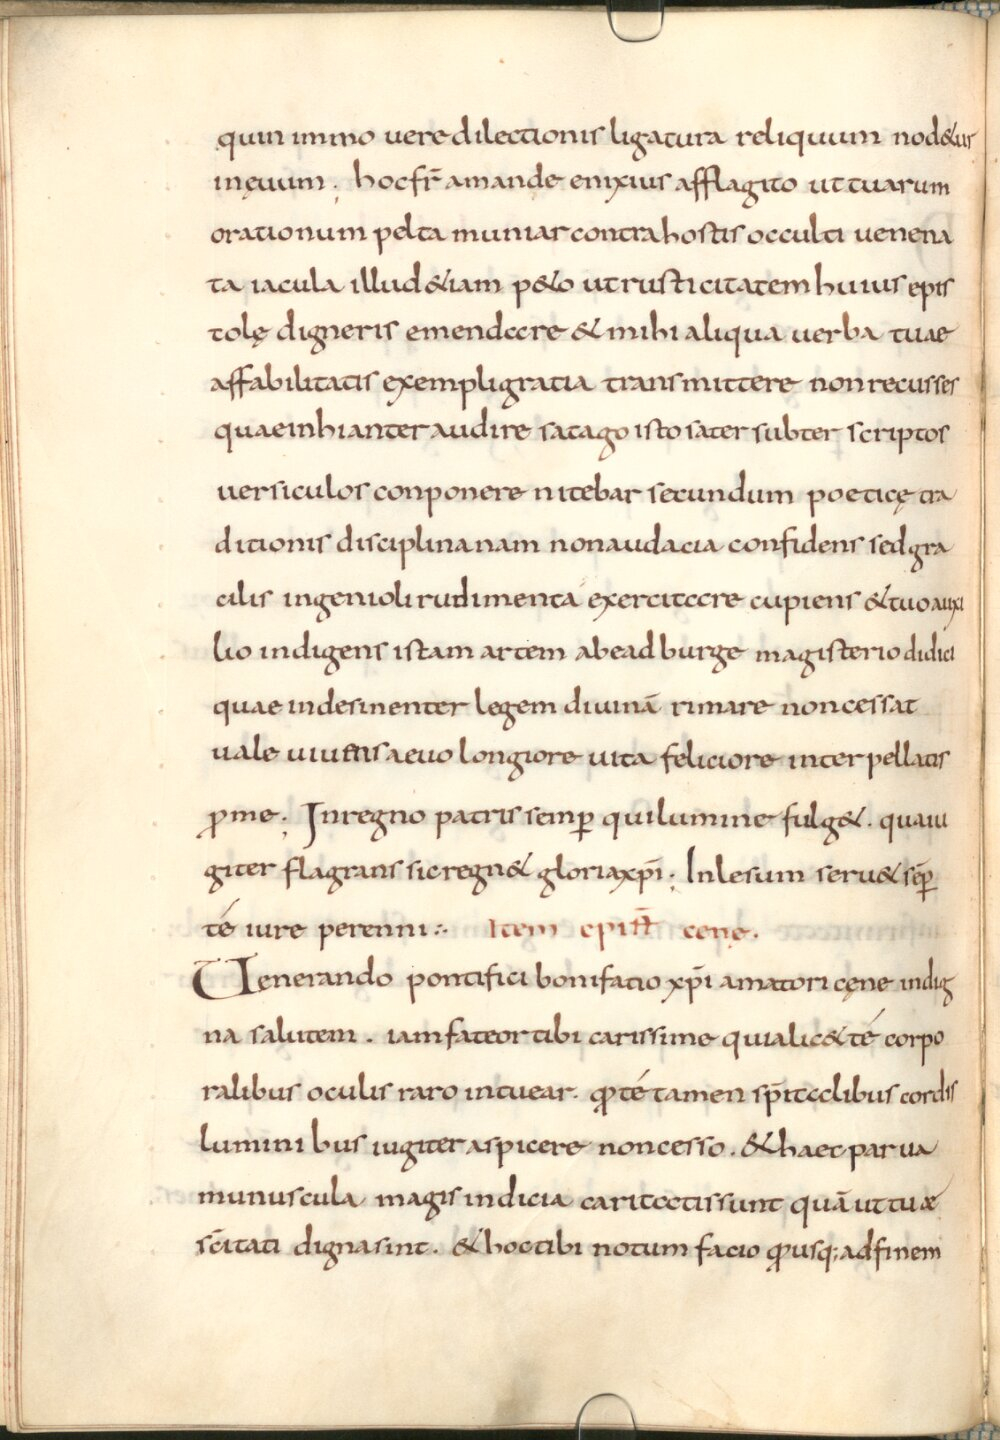 quin immo uere dilectionis ligatura reliquum nod&ur
inęuum. hoc fr̄ amande enixius afflagito ut tuarum
orationum pelta muniar contra hostis occulti uenena
ta iacula illud &iam p&o ut rusticitatem huius epis
tolę digneris emendare & mihi aliqua uerba tuae
affabilitatis exempli gratia transmittere non recusses
quae inhianter audire satago isto sater subter scriptos
uersiculos conponere nitebar secundum poeticę tra
ditionis disciplinanam non audacia confidens sed gra
cilis ingenioli rudimenta exercitare cupiens & tuo auxi
lio indigens istam artem ab eadburge magisterio didici
quae indesinenter legem diuinā rimare non cessat
uale uiuens aeuo longiore uita feliciore interpellatis
ꝓ me. In regno patris semp̄ qui lumine fulg&. qua iu
giter flagrans sic regn& gloria xp̄i. Inlesum seru& sēp̄
té iure perenni :· Item epist̄ cene.
Uenerando pontifici bonifatio xp̄i amatori cęne indig
na salutem. iam fateor tibi carissime quia lic& té corpo
ralibus oculis raro intuear. ꝓ té tamen sp̄italibus cordis
luminibus iugiter aspicere non cesso. & haec parua
munuscula magis indicia caritatis sunt quā ut tuæ
sc̄itati digna sint. & hoc tibi notum facio ꝓ usq; ad finem